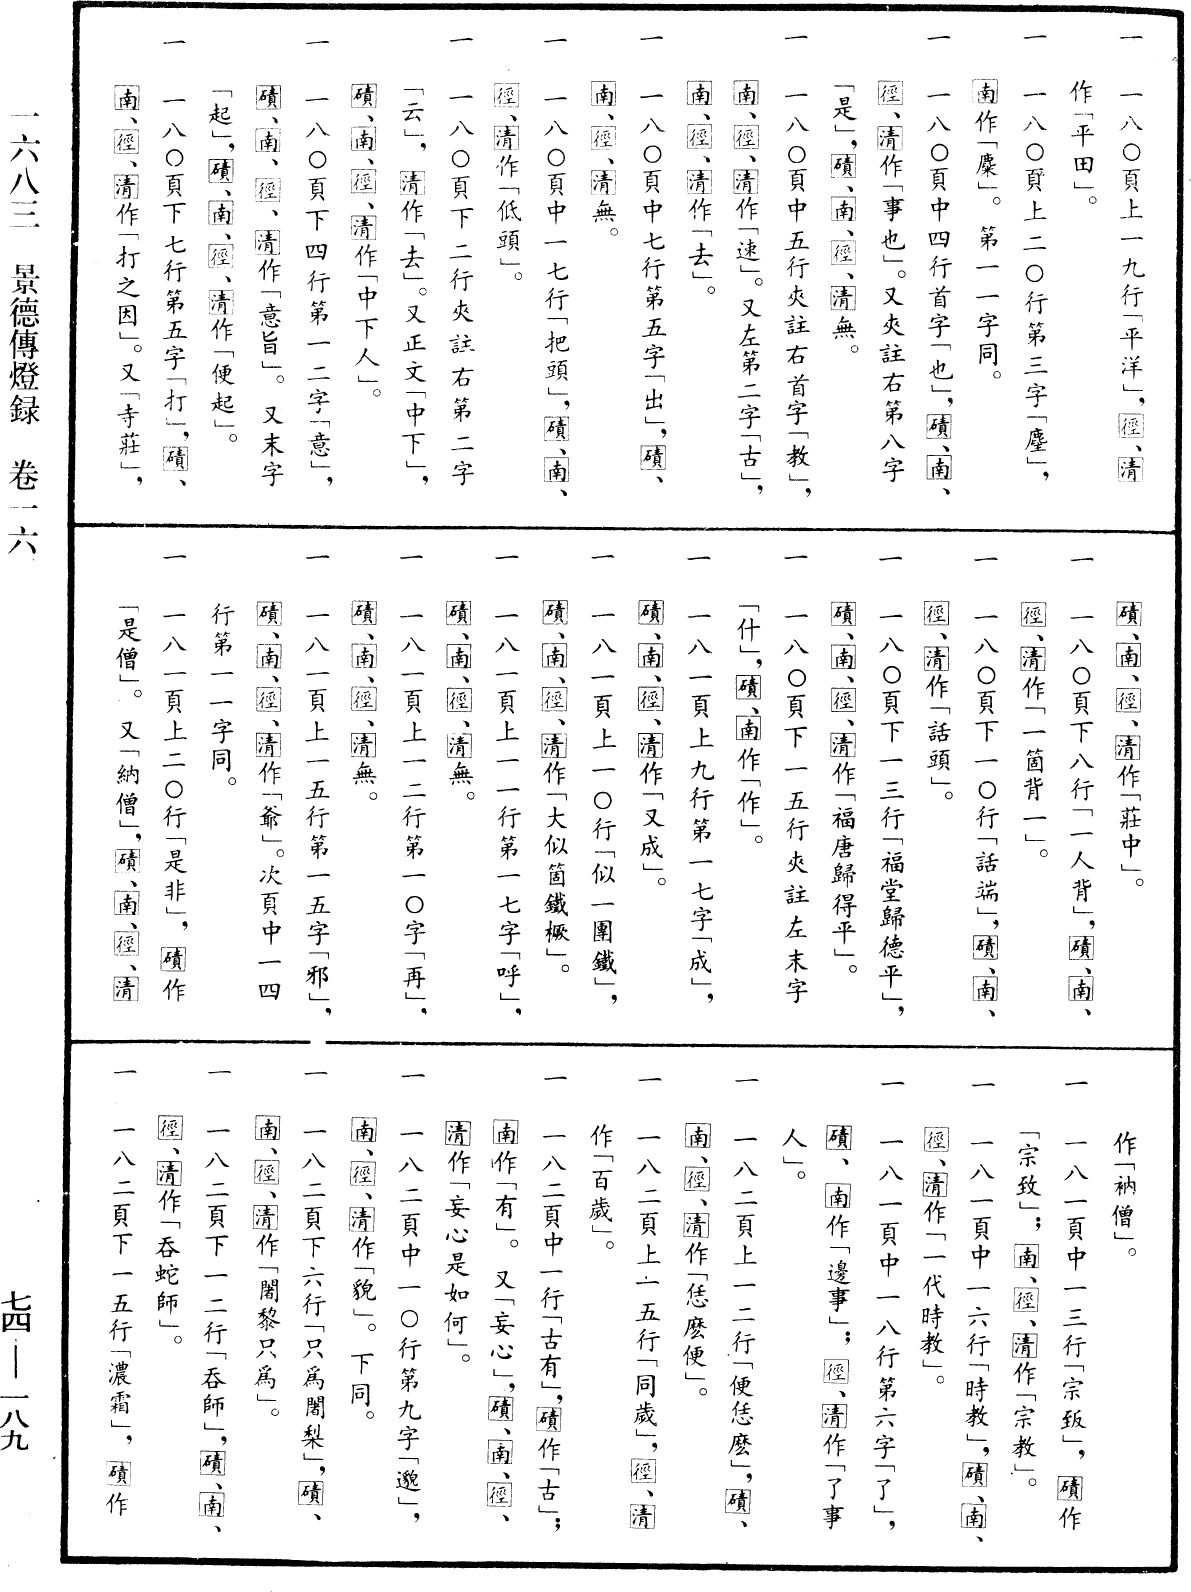 一　一八〇頁上一九行「平洋」，徑、清
作「平田」。
一　一八〇頁上二〇行第三字「塵」，
南作「麋」。第一一字同。
一　一八〇頁中四行首字「也」，磧、南、
徑、清作「事也」。又夾註右第八字
「是」，磧、南、徑、清無。
一　一八〇頁中五行夾註右首字「教」，
南、徑、清作「速」。又左第二字「古」，
南、徑、清作「去」。
一　一八〇頁中七行第五字「出」，磧、
南、徑、清無。
一　一八〇頁中一七行「把頭」，磧、南、
徑、清作「低頭」。
一　一八〇頁下二行夾註右第二字
「云」，清作「去」。又正文「中下」，
磧、南、徑、清作「中下人」。
一　一八〇頁下四行第一二字「意」，
磧、南、徑、清作「意旨」。又末字
「起」，磧、南、徑、清作「便起」。
一　一八〇頁下七行第五字「打」，磧、
南、徑、清作「打之因」。又「寺莊」，
磧、南、徑、清作「莊中」。
一　一八〇頁下八行「一人背」，磧、南、
徑、清作「一箇背一」。
一　一八〇頁下一〇行「話端」，磧、南、
徑、清作「話頭」。
一　一八〇頁下一三行「福堂歸德平」，
磧、南、徑、清作「福唐歸得平」。
一　一八〇頁下一五行夾註左末字
「什」，磧、南作「作」。
一　一八一頁上九行第一七字「成」，
磧、南、徑、清作「又成」。
一　一八一頁上一〇行「似一團鐵」，
磧、南、徑、清作「大似箇鐵橛」。
一　一八一頁上一一行第一七字「呼」，
磧、南、徑、清無。
一　一八一頁上一二行第一〇字「再」，
磧、南、徑、清無。
一　一八一頁上一五行第一五字「邪」，
磧、南、徑、清作「爺」。次頁中一四
行第一一字同。
一　一八一頁上二〇行「是非」，磧作
「是僧」。又「納僧」，磧、南、徑、清
作「衲僧」。
一　一八一頁中一三行「宗䟦」，磧作
「宗致」；南、徑、清作「宗教」。
一　一八一頁中一六行「時教」，磧、南、
徑、清作「一代時教」。
一　一八一頁中一八行第六字「了」，
磧、南作「邊事」；徑、清作「了事
人」。
一　一八二頁上一二行「便恁麽」，磧、
南、徑、清作「恁麽便」。
一　一八二頁上一五行「同歲」，徑、清
作「百歲」。
一　一八二頁中一行「古有」，磧作「古」；
南作「有」。又「妄心」，磧、南、徑、
清作「妄心是如何」。
一　一八二頁中一〇行第九字「邈」，
南、徑、清作「貌」。下同。
一　一八二頁下六行「只爲闍梨」，磧、
南、徑、清作「闍黎只爲」。
一　一八二頁下一二行「吞師」，磧、南、
徑、清作「吞蛇師」。
一　一八二頁下一五行「濃霜」，磧作
一六八三　景德傳燈録　卷一六
七四——一八九